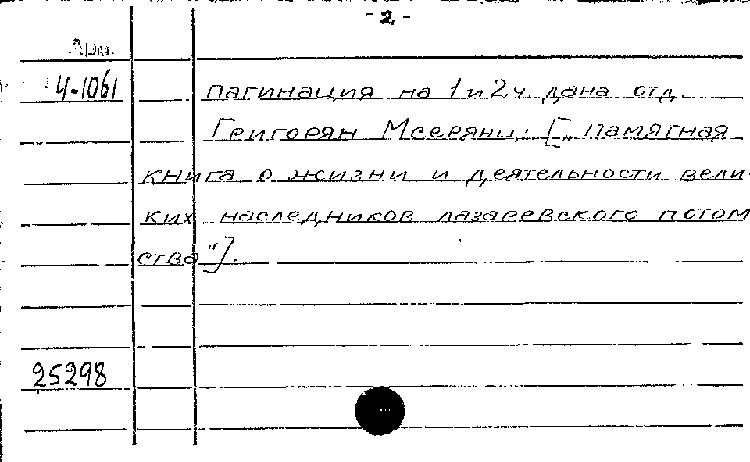 - 2 -
Арм.
4-1061
пагинация на 1 и 2 ч. дана отд.
Григорян Мсерянц. [„Памятная
книга о жизни и деятельности вели-
ких наследников лазаревского потом
ства"].
25298